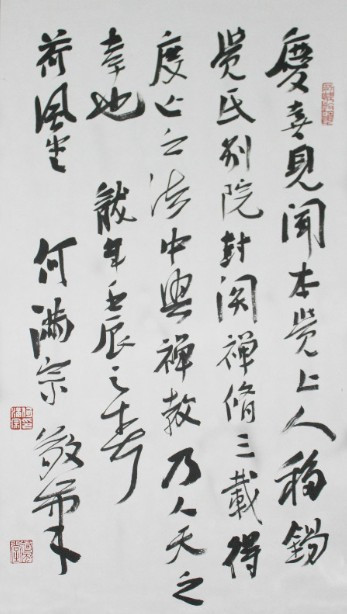 慶喜見聞本覺上人移錫
覺氏别院封関禪脩三載得
度上之法中興禪教乃人天之
幸也 龍年壬辰之春
荷風堂 何滿宗 敬筆